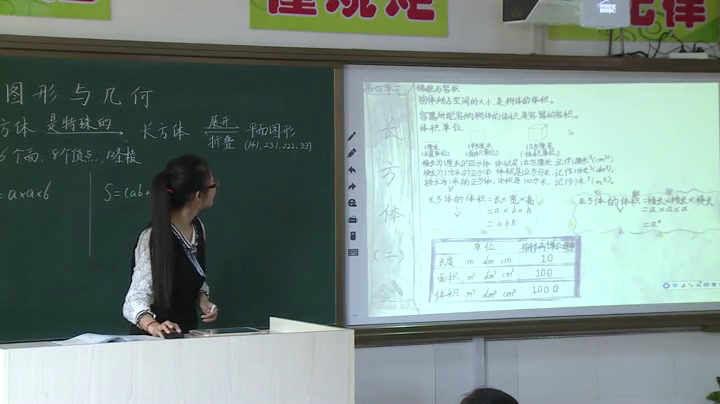 图形与几何
方体 是特殊的 长方体 展开 折叠 平面图形
(141,231,222,33)
6个面,8个顶点,12条棱
=a×a×6
S=(ab+
第四单元
长方体(一)
体积与容积
物体所占空间的大小,是物体的体积。
容器所能容纳物体的体积是容器的容积。
体积单位
棱长为1厘米的正方体,体积是1立方厘米,记作1厘米³(cm³);
棱长为1分米的正方体,体积是1立方分米,记作1分米³(dm³);
棱长为1米的正方体,体积是1立方米,记作1米³(m³)。
长方体的体积=长×宽×高
V =a×b×h
=abh
正方体的体积=棱长×棱长×棱长
V =a×a×a
=a³
单位 相邻两个单位进率
长度 m dm cm 10
面积 m² dm² cm² 100
体积 m³ dm³ cm³ 1000